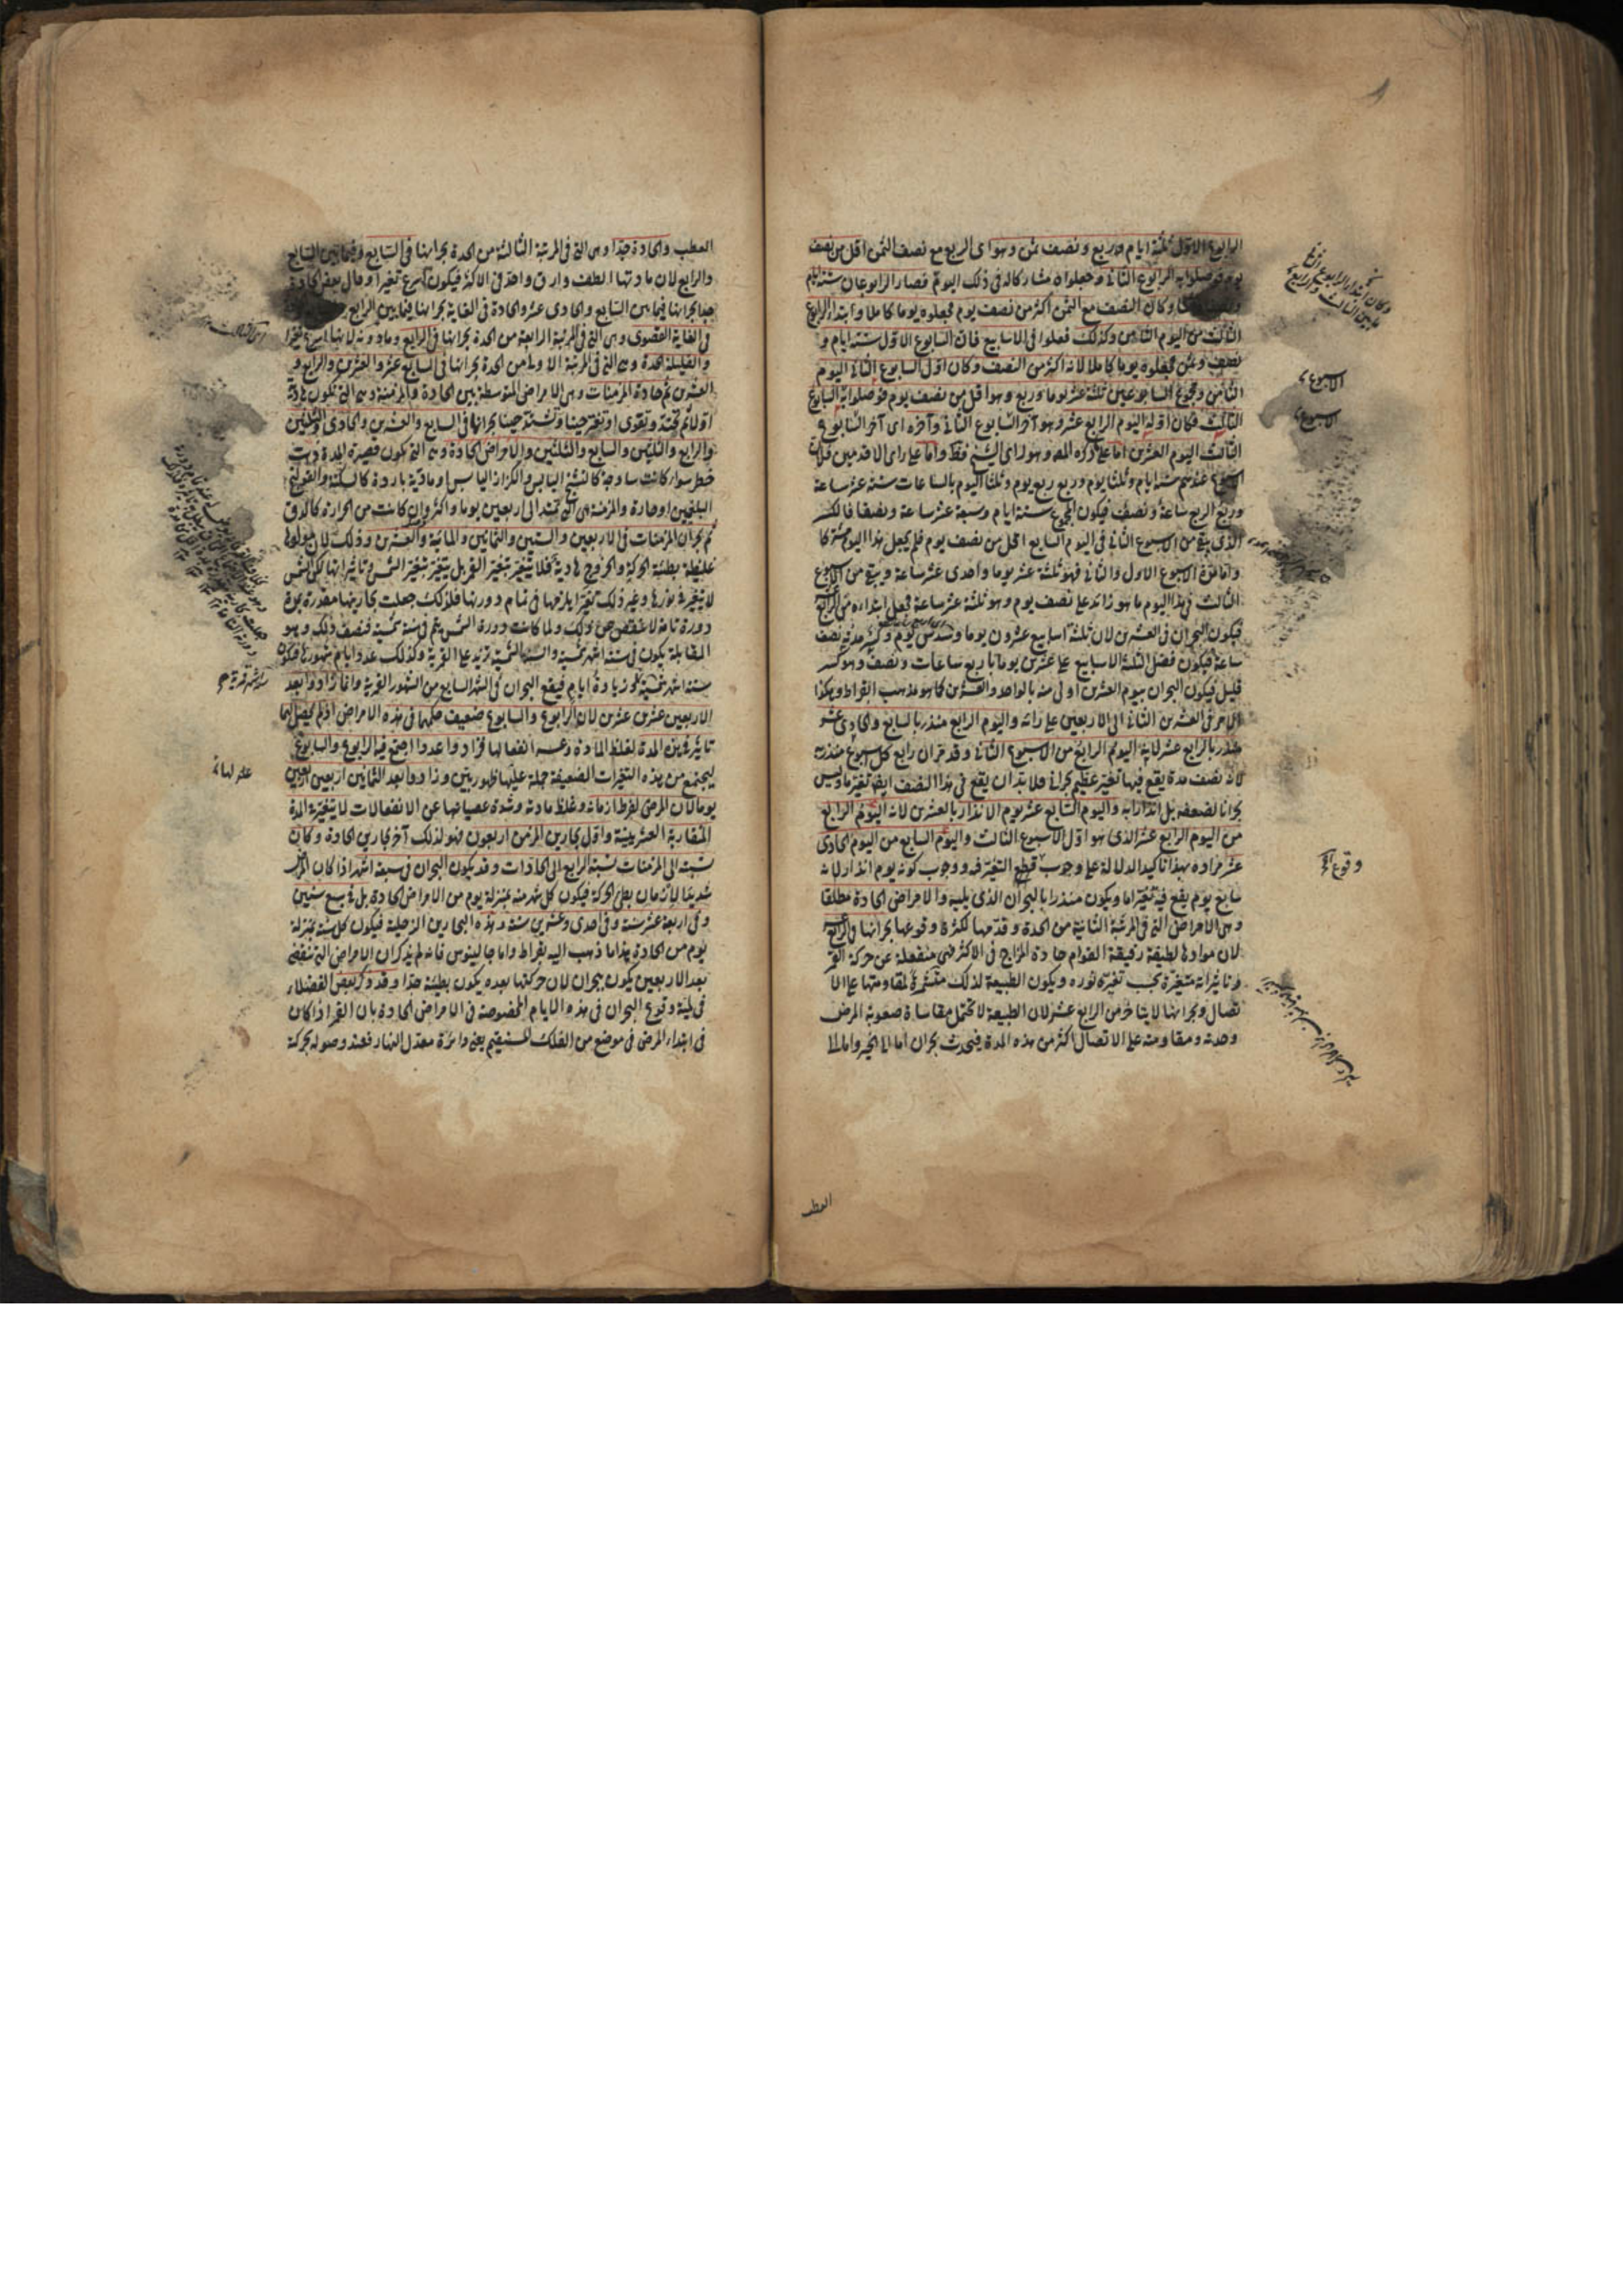 الرابوع الاول ثلثة ايام وربع ونصف ثمن وهو اى الربع مع نصف الثمن اقل من نصف
يوم فوصلوا به الرابوع الثانى وجعلوا له مشاركا له فى ذلك اليوم فصار الرابوعان ستة ايام
وكان النصف مع الثمن اكثر من نصف يوم فجعلوه يوما كاملا وابتداء الرابوع
الثالث من اليوم الثامن وكذلك فعلوا فى الاسابيع فان السابوع الاول ستة ايام و
نصف وثمن فجعلوه يوما كاملا لانه اكثر من النصف وكان اول السابوع الثانى اليوم
الثامن ومجموع السابوعين ثلثة عشر يوما وربع وهو اقل من نصف يوم فوصلوا به السابوع
الثالث فكان اوله اليوم الرابع عشر وهو آخر السابوع الثانى وآخره اى آخر السابوع
الثالث اليوم العشرين اما على ذكره المص وهو راى الشيخ فقط واما على راى الاقدمين فلان
عندهم ستة ايام وثلثا يوم وربع ربع يوم وثلثا اليوم بالساعات ستة عشر ساعة
وربع الربع ساعة ونصف فيكون المجموع ستة ايام وسبعة عشر ساعة ونصفا فالكسر
الذى بقى من الاسبوع الثانى فى اليوم السابع اقل من نصف يوم فلم يجعل هذا اليوم
واما مدة الاسبوع الاول والثانى فهو ثلثة عشر يوما واحدى عشر ساعة ويبقى من الاسبوع
الثالث فى هذا اليوم ما هو زائد على نصف يوم وهو ثلثة عشر ساعة فجعل ابتداءه من الرابع
فيكون البحران فى العشرين لان ثلثة اسابيع عشرون يوما وسدس يوم
ساعة فيكون فضل الثلثة الاسابيع على عشرين يوما باربع ساعات ونصف وهو كسر
قليل فيكون البحران بيوم العشرين اولى منه بالواحد والعشرين كما هو مذهب القراط وهكذا
الامر فى العشرين الثانى الى الاربعين على رائه واليوم الرابع منذر بالسابع والحادى عشر
منذر بالرابع عشر لانه اليوم الرابع من الاسبوع الثانى وقد مر ان رابع كل اسبوع منذر به
لانه نصف مدة يقع فيها تغير عظيم بحرانى فلا بد ان يقع فى هذا النصف ايض تغير ما وليس
بحرانا لضعفه بل انذارا به واليوم السابع عشر يوم الانذار بالعشرين لانه اليوم الرابع
من اليوم الرابع عشر الذى هو اول الاسبوع الثالث واليوم السابع من اليوم الحادى
عشر مراده بهذا تاكيد الدلالة على وجوب قطع التغير فيه ووجوب كونه يوم انذار لانه
سابع يوم يقع فيه تغير اما ويكون منذرا بالبحران الذى يليه والامراض الحادة مطلقا
وهى الامراض التى فى المرتبة الثانية من الحدة وقدمها لكثرة وقوعها بحرانها فى الرابع عشر
لان موادها لطيفة رقيقة القوام حادة المزاج فى الاكثر فهى منفعلة عن حركة القمر
وتاثيراته متغيرة بحسب تغير نوره ويكون الطبيعة لذلك لمقاومتها على الا
تصال وبحرانها لا يتاخر من الرابع عشر لان الطبيعة لا تحتمل مقاساة صعوبة المرض
وحدته ومقاومته على الاتصال اكثر من هذه المدة فيحدث بحران اما الى الخير واما الى
العطب
الاسبوع
الاسبوع
وقوع
العطب والحادة جدا وهى التى فى المرتبة الثالثة من الحدة بحرانها فى السابع وفيما بين السابع
والرابع لان مادتها الطف وارق واحد فى الاكثر فيكون اسرع تغيرا وقال بعض الحادة
جدا بحرانها فيما بين السابع والحادى عشر والحادة فى الغاية بحرانها فيما بين الرابع
فى الغاية القصوى وهى التى فى المرتبة الرابعة من الحدة بحرانها فى الرابع وما دونه لانها اسرع تغيرا
والقليلة الحدة وهى التى فى المرتبة الاولى من الحدة بحرانها فى السابع عشر والعشرين والرابع و
العشرين ثم حادة المزمنات وهى الامراض المتوسطة بين الحادة والمزمنة وهى التى تكون هادئة
اولا ثم تحتد وتقوى او تفتر حينا وتشتد حينا بحرانها فى السابع والعشرين والحادى والثلثين
والرابع والثلثين والسابع والثلثين والامراض الحادة وهى التى تكون قصيرة المدة ذات
خطر سوا كانت ساذجة كالتشنج اليابس والكزاز اليابس او مادية باردة كالسكتة والقولنج
البلغميين او حارة والمزمنة هى التى تمتد الى اربعين يوما واكثر وان كانت من الحرارة كالدق
ثم بحران المزمنات فى الاربعين والستين والثمانين والمائة والعشرين وذلك لان موادها
غليظة بطيئة الحركة والخروج هادية فلا يتغير بتغير القمر بل يتغير بتغير الشمس وتاثيراتها لكن الشمس
لا يتغير فى نورها وغير ذلك تغيرا يلزمها فى تمام دورتها فلذلك جعلت بحارينها مقدرة بمدة
دورة تامة لا تنقص عن ذلك ولما كانت دورة الشمس يتم فى سنة شمسية فنصف ذلك وهو
المقابلة يكون فى ستة اشهر شمسية والسنة الشمسية تزيد على القمرية وكذلك عدد ايام شهورها فيكون
ستة اشهر شمسية زيادة ايام فيقع البحران فى الشهر السابع من الشهور القمرية وانما زادوا بعد
الاربعين عشرين عشرين لان الرابوع والسابوع ضعيف حكمها فى هذه الامراض اذ لم يحصل لهما
تاثير فى هذه المدة لغلظ المادة وعسر انفعالها فزادوا عددا اجتمع فيه الرابوع والسابوع
ليجتمع من هذه التغيرات الضعيفة جملة عليها ظهور بيّن وزادوا بعد الثمانين اربعين اربعين
يوما لان المرض لفرط ازمانه وغلظ مادته وشدة عصيانها عن الانفعالات لا يتغير فى المدة
المتقاربة العشرينية واول بحارين المزمن اربعون فهو لذلك آخر بحارين الحادة وكان
نسبته الى المزمنات نسبة الرابع الى الحادات وقد يكون البحران فى سبعة اشهر اذا كان المرض
شديد الازمان بطئ الحركة فيكون كل شهر منه بمنزلة يوم من الامراض الحادة بل فى سبع سنين
وفى اربعة عشر سنة وفى احدى وعشرين سنة وهذه البحارين الزحلية فيكون كل سنة بمنزلة
يوم من الحادة هذا ما ذهب اليه بقراط واما جالينوس فانه لم يذكر ان الامراض التى تنقضى
بعد الاربعين يكون ببحران لان حركتها بعده يكون بطيئة جدا وقد ذكر بعض الفضلاء
فى لمية وقوع البحران فى هذه الايام المخصوصة فى الامراض الحادة بان القمر اذا كان
فى ابتداء المرض فى موضع من الفلك المستقيم يعنى دائرة معدل النهار فعند وصوله بحركة